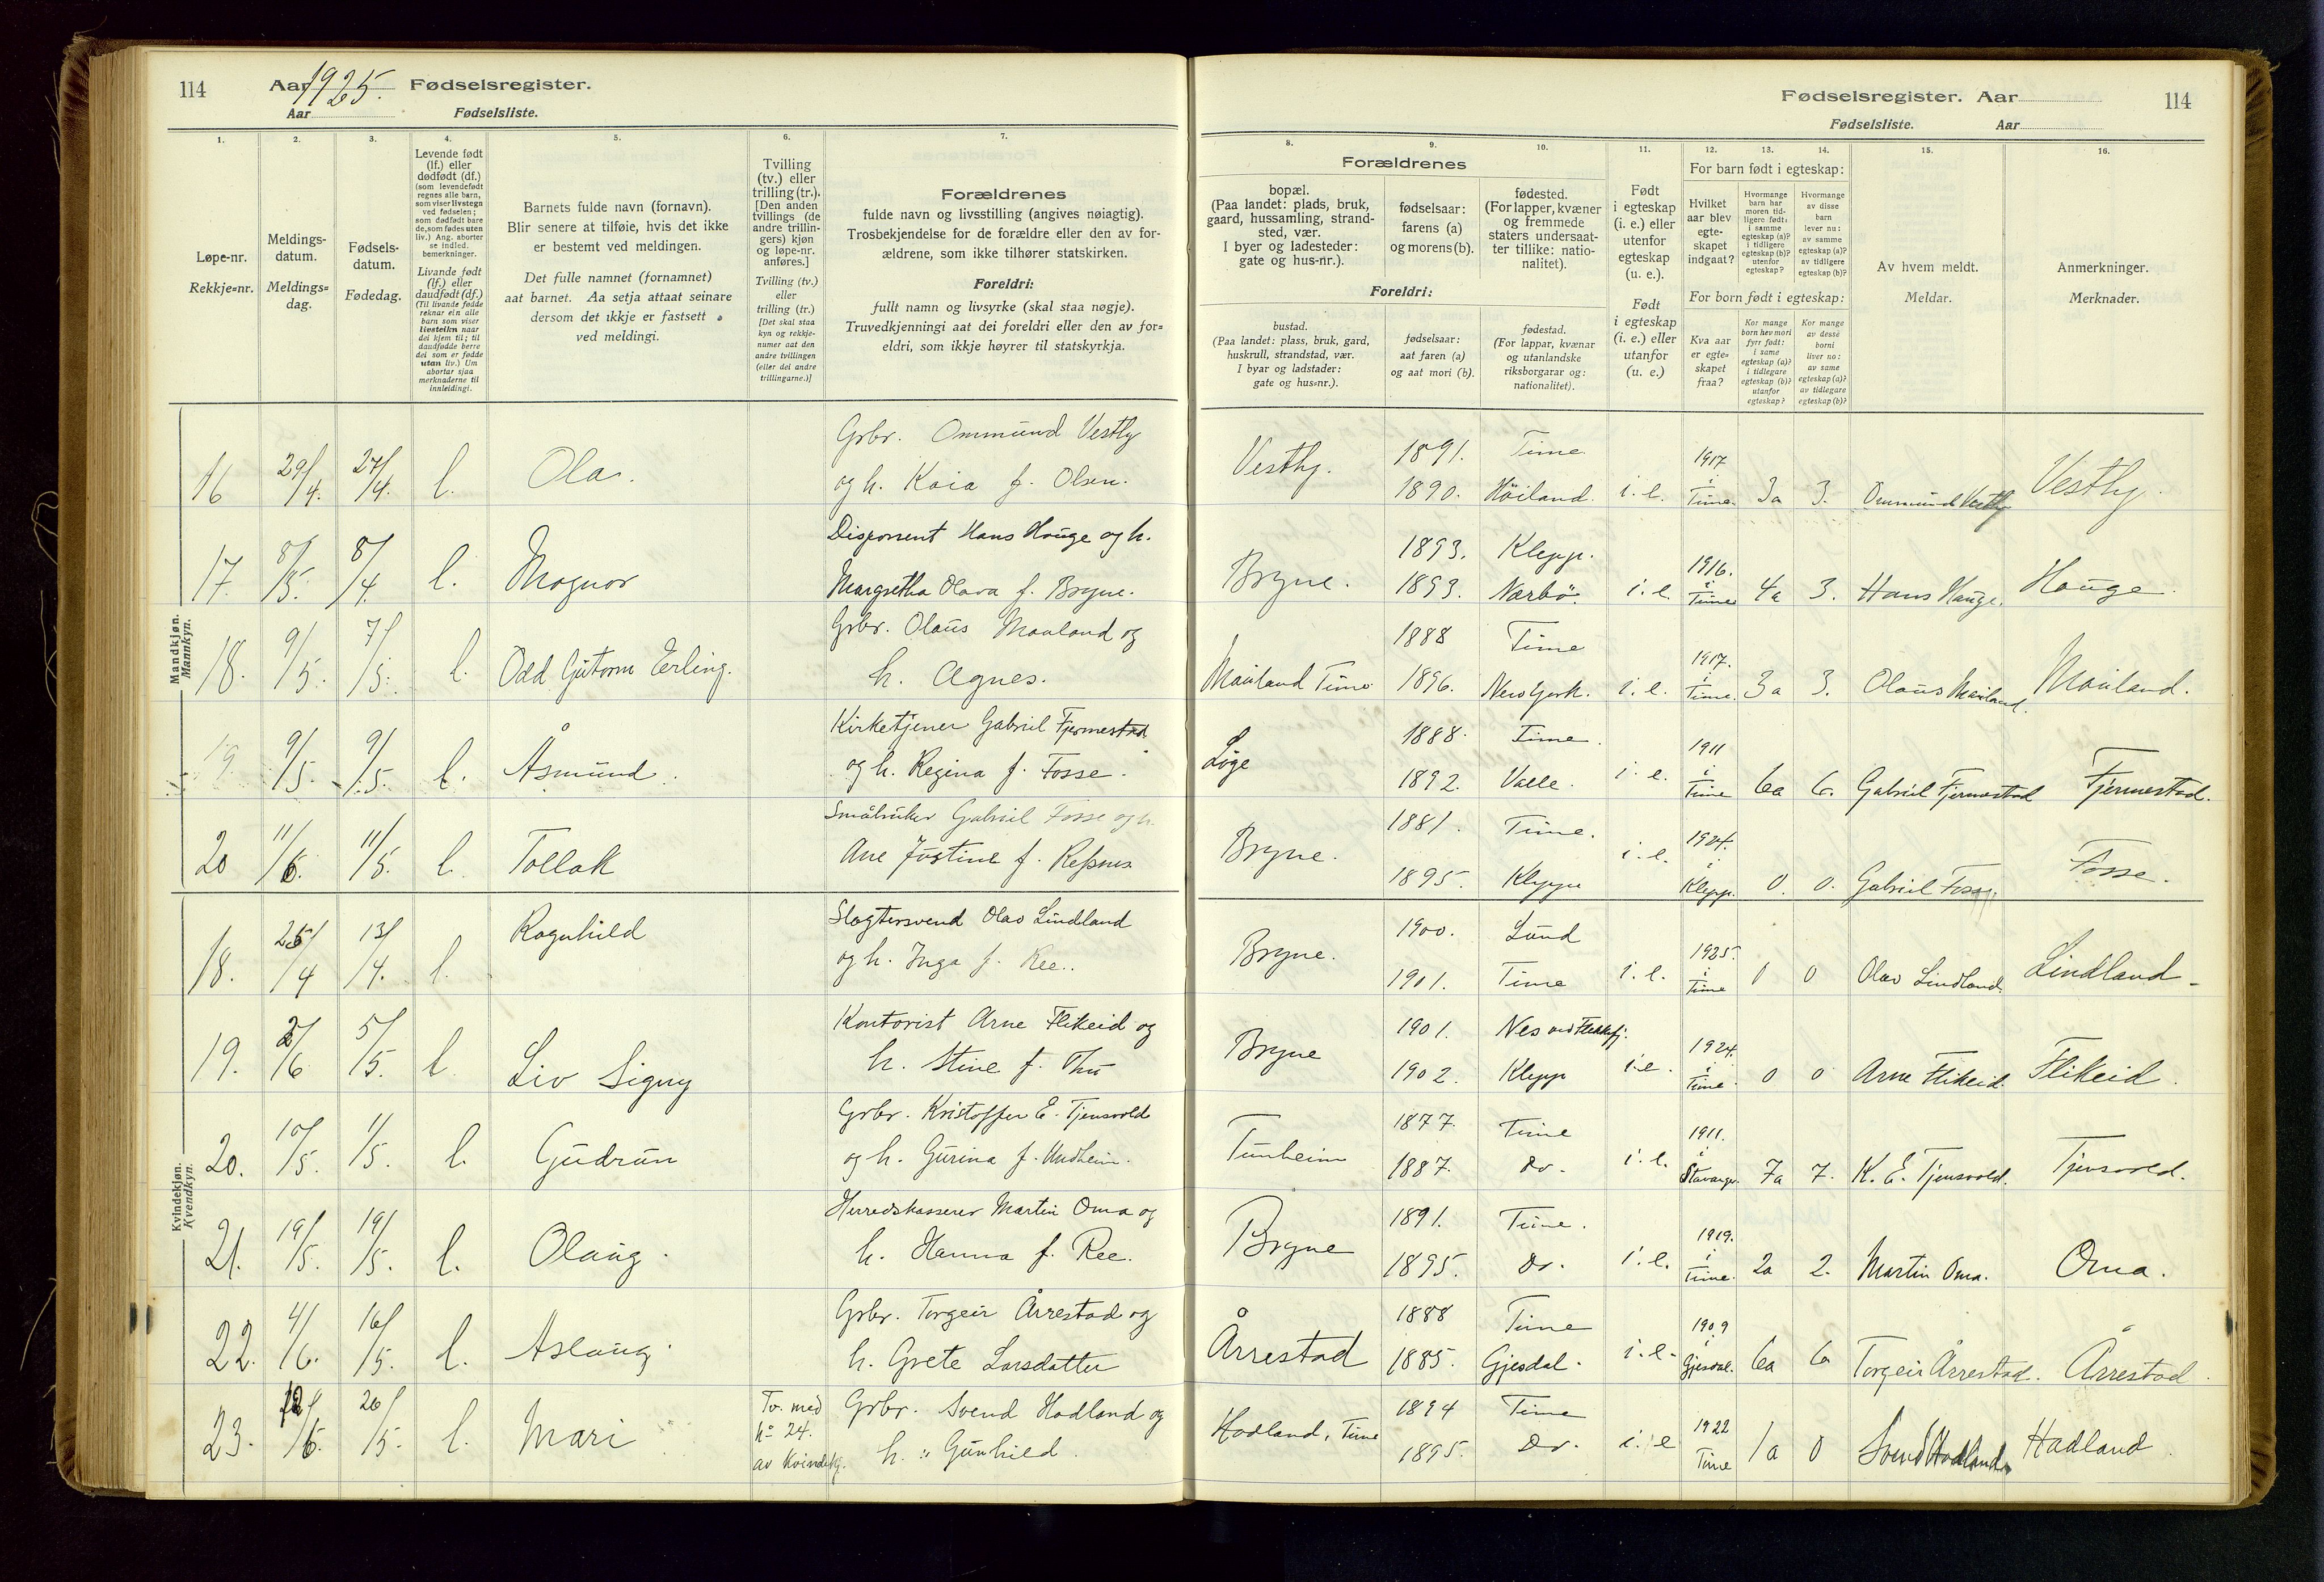 114
Aar 1925. Fødselsregister.
Aar Fødselsliste.
1. 2. 3. 4. 5. 6. 7.
Løpe-nr.
Rekkje=nr.
Meldings-
datum.
Meldings=
dag.
Fødsels-
datum.
Fødedag.
Levende født
(lf.) eller
dødfødt (df.)
(som levendefødt
regnes alle barn,
som viser livstegn
ved fødselen;
som dødfødt bare
de, som fødes uten
liv.) Ang. aborter
se indled.
bemerkninger.
Livande født
(lf.) eller
daudfødt (df.)
(Til livande fødde
reknar ein alle
born som viser
livsteikn naar
dei kjem til; til
daudfødde berre
dei som er fødde
utan liv.) Um
abortar sjaa
merknaderne til
innleidingi.
Barnets fulde navn (fornavn).
Blir senere at tilføie, hvis det ikke
er bestemt ved meldingen.
Det fulle namnet (fornamnet)
aat barnet. Aa setja attaat seinare
dersom det ikkje er fastsett
ved meldingi.
Tvilling
(tv.) eller
trilling (tr.).
[Den anden
tvillings (de
andre trillin-
gers) kjøn
og løpe-nr.
anføres.]
Tvilling (tv.)
eller
trilling (tr.)
[Det skal staa
kyn og rekkje-
numer aat den
andre tvillingen
(eller dei andre
trillingarne.)]
Forældrenes
fulde navn og livsstilling (angives nøiagtig).
Trosbekjendelse for de forældre eller den av for-
ældrene, som ikke tilhører statskirken.
Foreldri:
fullt namn og livsyrke (skal staa nøgje).
Truvedkjenningi aat dei foreldri eller den av for=
eldri, som ikkje høyrer til statskyrkja.
Mandkjøn.
Mannkyn.
16 29/4. 27/4. l. Ola. Grbr. Ommund Vestly
og h. Kaia f. Olsen.
17. 8/5. 8/4. l. Magnar Disponent Hans Hauge og h.
Margretha Olava f. Bryne.
18. 9/5. 7/5. l. Odd Gutorm Erling. Grbr. Olaus Mauland og
h. Agnes.
19. 9/5. 9/5. l. Åsmund. Kirketjener Gabriel Fjermestad
og h. Regina f. Fosse.
20 11/6. 11/5. l. Tollak Småbruker Gabriel Fosse og h.
Ane Justine f.
Kvindekjøn.
Kvendkyn.
18. 25/4 13/4. l. Ragnhild Slagtersvend Olav Lindland
og h. Inga f. Ree.
19. 2/6 5/5. l. Liv Signy Kontorist Arne Flikeid og
h. Stine f. Thu
20. 10/5. 1/5. l. Gudrun Grbr. Kristoffer E. Tjensvold
og h. Gurina f. Undheim.
21. 19/5. 19/5. l. Olaug. Herredskasserer Martin Oma og
h. Hanna f. Ree.
22. 4/6. 16/5. l. Aslaug. Grbr. Torgeir Årrestad og
h. Grete Larsdatter
23. 12/6. 26/5. l. Mari Tv. med
No 24.
av kvindekj. Grbr. Svend Hadland og
h. " Gunhild.
Fødselsregister. Aar
114
Fødselsliste. Aar
8. 9. 10. 11. 12. 13. 14. 15. 16.
Forældrenes
bopæl.
(Paa landet: plads, bruk,
gaard, hussamling, strand-
sted, vær.
I byer og ladesteder:
gate og hus-nr.).
fødselsaar:
farens (a)
og morens (b).
fødested.
(For lapper, kvæner
og fremmede
staters undersaat-
ter tillike: natio-
nalitet).
Foreldri:
bustad.
(Paa landet: plass, bruk, gard,
huskrull, strandstad, vær.
I byar og ladstader:
gate og hus=nr.).
fødselsaar:
aat faren (a)
og aat mori (b).
fødestad.
(For lappar, kvænar
og utanlandske
riksborgarar og:
nationalitet).
Født
i egteskap
(i. e.) eller
utenfor
egteskap
(u. e.).
Født
i egteskap
(i. e.) eller
utanfor
(u. e.)
For barn født i egteskap:
Hvilket
aar blev
egte-
skapet
indgaat?
Hvormange
barn har
moren tid-
ligere født:
i samme
egteskap (a)?
i tidligere
egteskap (b)?
utenfor
egteskap?
Hvormange
av disse
barn
lever nu:
av samme
egteskap (a)?
av tidligere
egteskap (b)?
For born født i egteskap:
Kva aar
er egte=
skapet
fraa?
Kor mange
born hev mori
fyrr født:
i same
egteskap (a)?
i tidlegare
egteskap (b)?
utanfor
egteskap?
Kor mange
av desse
borni
liver no:
av same
egteskap (a)?
av tidlegare
egteskap (b)?
Av hvem meldt.
Meldar.
Anmerkninger.
Merknader.
Vestly. 1891. Time
1890. Høiland. i. e. 1917 i Time. 3a 3. Ommund Vestly Vestly.
Bryne. 1893. Klepp.
1893. Nærbö. i. e. 1916. i Time 4a 3. Hans Hauge. Hauge.
Mauland Time 1888 Time
1896. New York. i. e. 1917. i Time. 3a 3. Olaus Mauland. Mauland.
Lôge 1888. Time.
1892. Valle. i. e. 1911 i Time 6a 6. Gabriel Fjermestad Fjermestad.
Bryne. 1881. Time.
1895. Klepp i. e. 1924. i Klepp. 0. 0. Gabriel Fosse. Fosse.
Bryne. 1900. Lund
1901. Time i. e. 1925. i Time 0 0 Olav Lindland. Lindland.
Bryne 1901. Nes ved Flekkefj.
1902. Klepp i. e. 1924. i Time. 0 0 Arne Flikeid. Flikeid.
Tunheim 1877. Time
1887. Do. i. e. 1911. i Stavanger. 7a 7. K. E. Tjensvold. Tjensvold.
Bryne 1891. Time.
1895. Do. i. e. 1919. i Time. 2a 2. Martin Oma. Oma.
Årrestad 1888 Time
1885. Gjesdal. i. e. 1909 i Gjesdal. 6a 6 Torgeir Årrestad. Årrestad.
Hadland, Time 1894 Time
1895. Do. i. e 1922 Time 1a 0 Svend Hadland. Hadland.